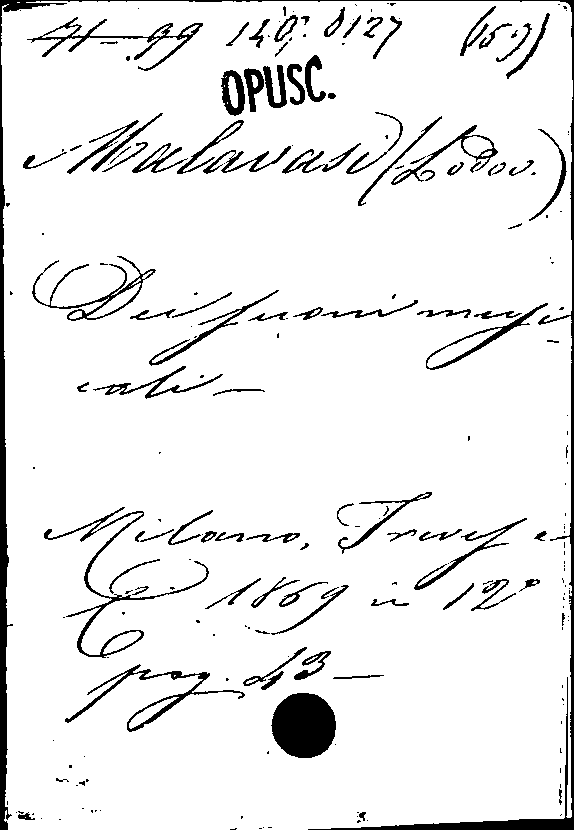 71-99 140. 0127 (157)
OPUSC.
Malavasi (Lodov.)
Dei suoni musi-
cali -
Milano, Treves e
C. 1869 in 12°
pag. 43 -